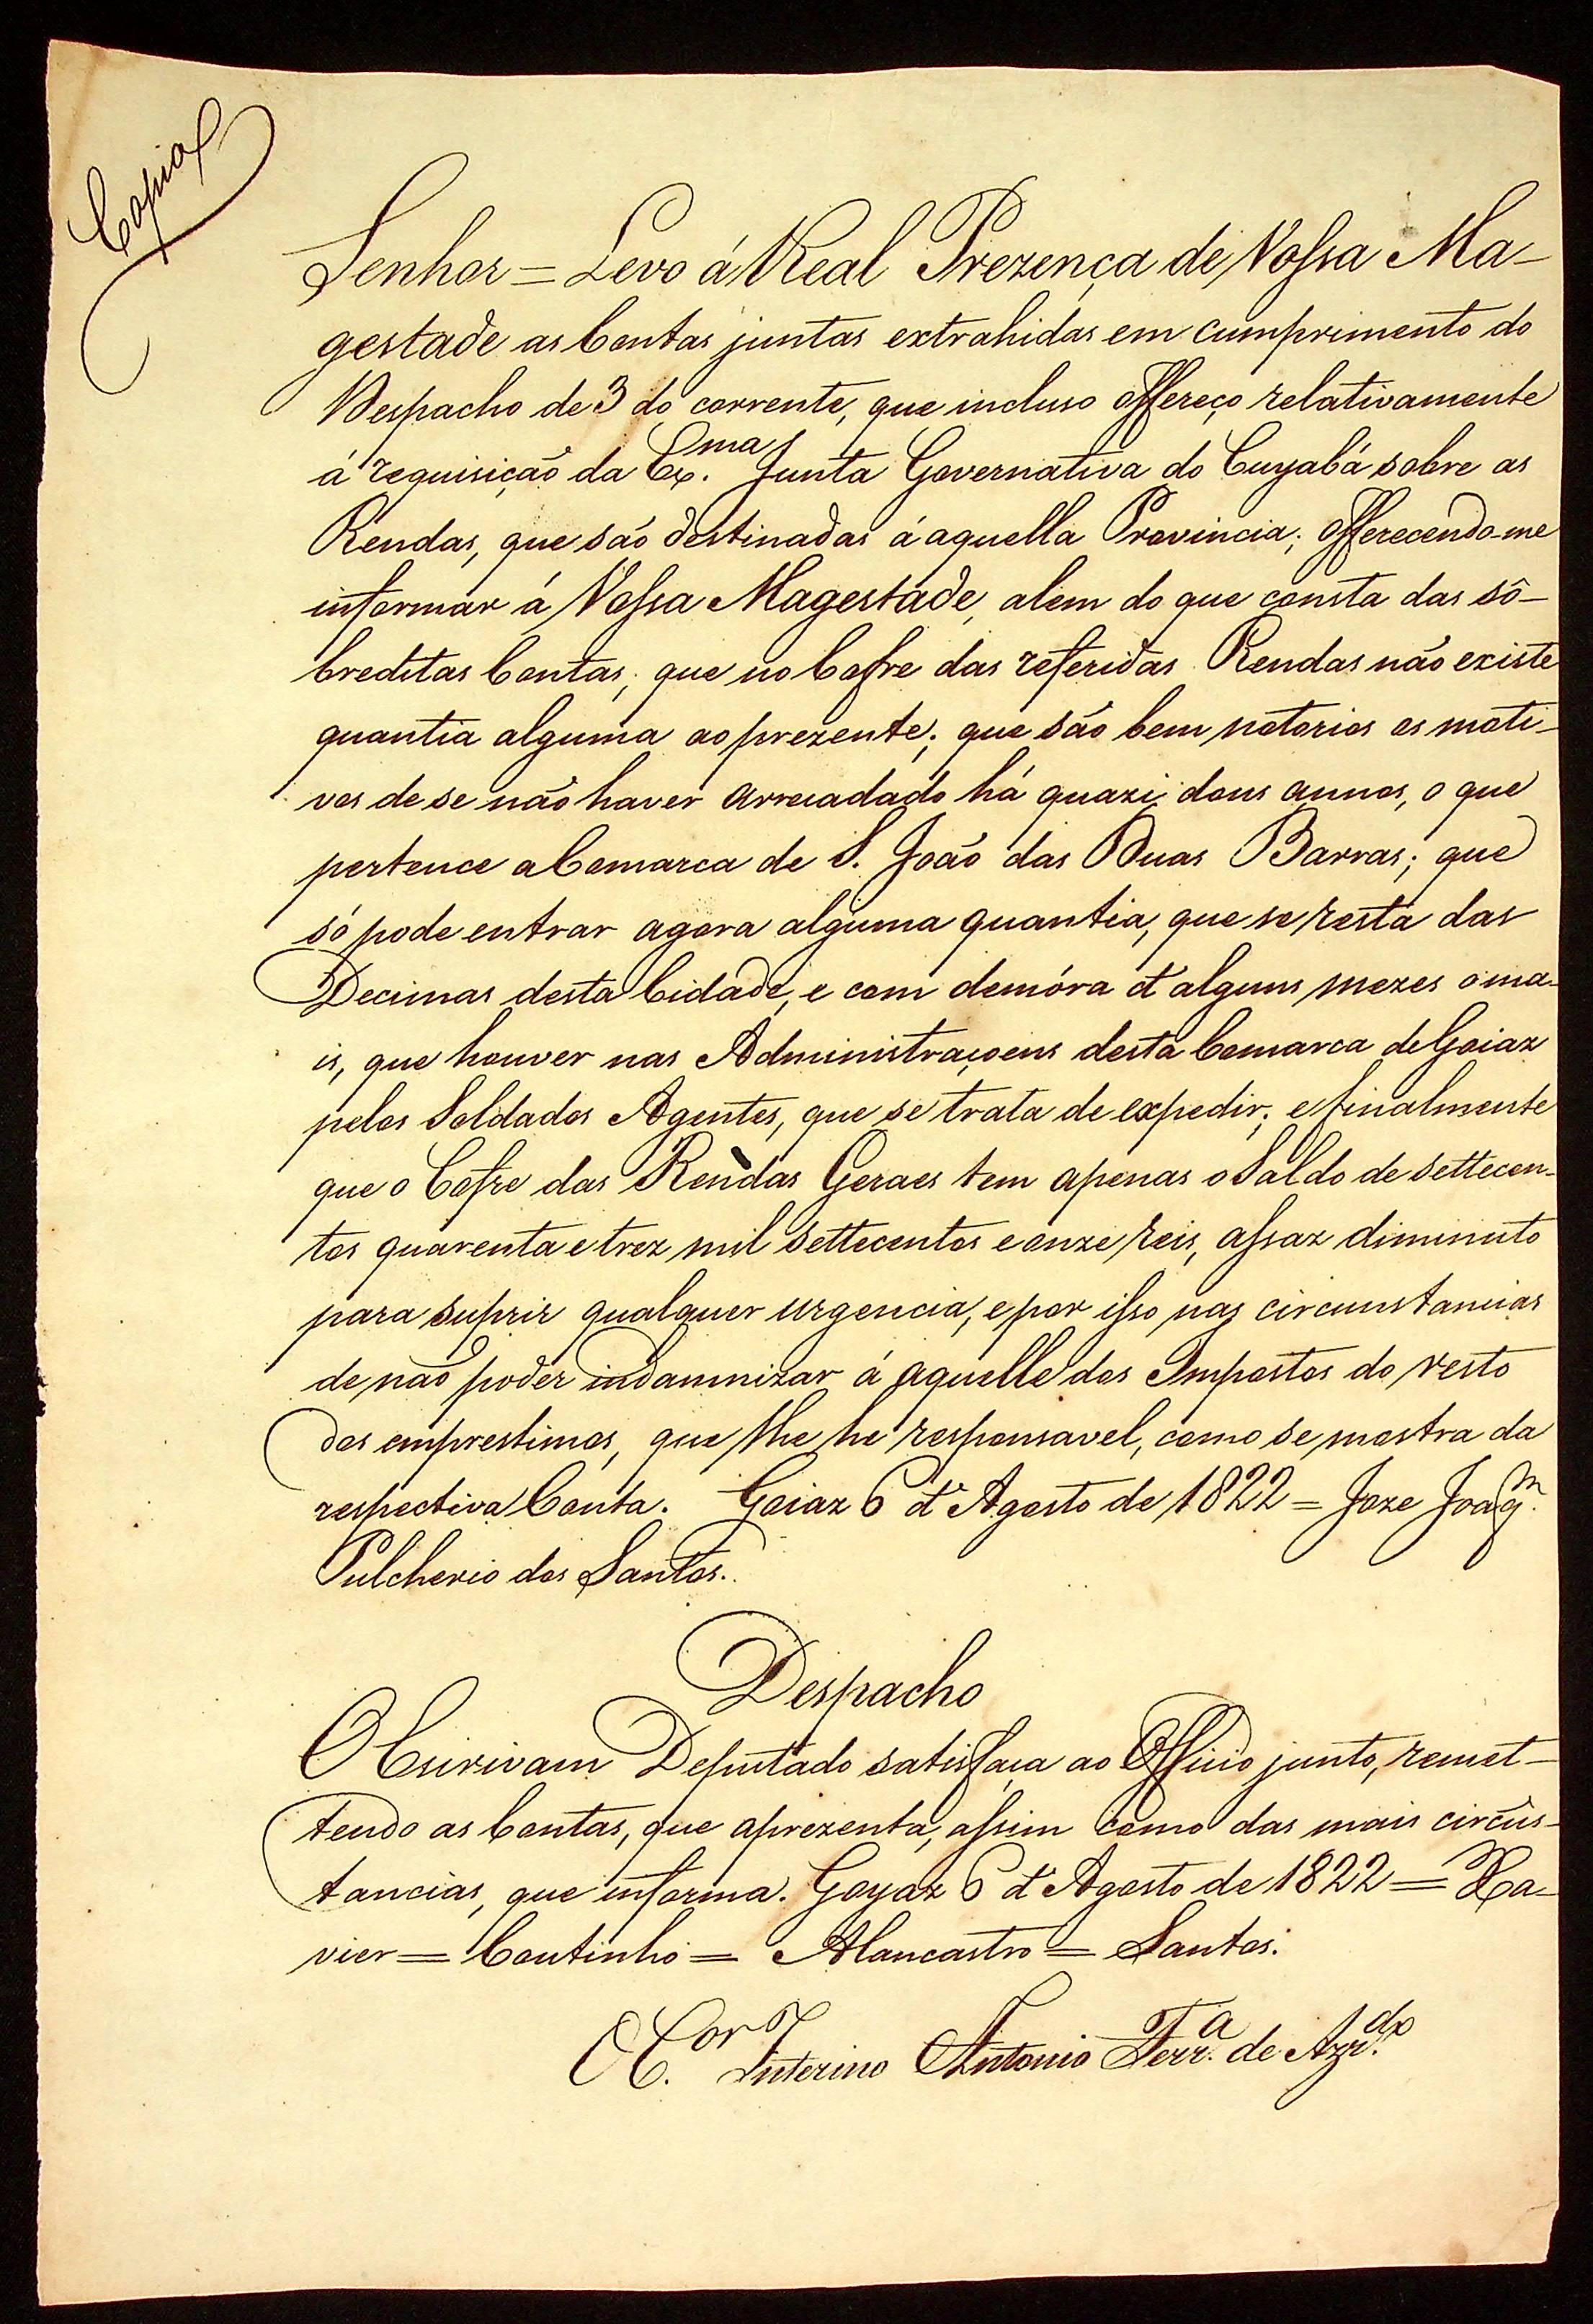 Copia
Senhor = Levo á Real Prezença de Vossa Ma-
gestade as Contas juntas extrahidas em cumprimento do
Despacho de 3 do corrente, que incluso offereço relativamente
á requisição da Ex.ma Junta Governativa do Cuyabá sobre as
Rendas, que são destinadas á aquella Provincia; offerecendo-me
informar á Vossa Magestade, alem do que consta das sô-
breditas Contas; que no Cofre das referidas Rendas não existe
quantia alguma ao prezente; que são bem notorios os moti-
vos de se não haver arrecadado há quazi dous annos, o que
pertence a Comarca de S. João das Duas Barras; que
só pode entrar agora alguma quantia, que se resta das
Decimas desta Cidade, e com demóra d'alguns mezes o ma-
is, que houver nas Administraçoens desta Comarca de Goiaz
pelos Soldados Agentes, que se trata de expedir; e finalmente
que o Cofre das Rendas Geraes tem apenas o Saldo de settecen-
tos quarenta e trez mil settecentos e onze reis, assaz diminuto
para suprir qualquer urgencia, e por isso nas circunstancias
de não poder indamnizar á aquelle dos Impostos do resto
dos emprestimos, que lhe he responsavel, como se mostra da
respectiva Conta. Goiaz 6 d'Agosto de 1822 = Joze Joaq.m
Pulcherio dos Santos.
Despacho
O Escrivam Deputado satisfaça ao Officio junto, remet-
tendo as Contas, que aprezenta, assim como das mais circũs-
tancias, que informa. Goyaz 6 d'Agosto de 1822 = Xa-
vier = Coutinho = Alancastro = Santos.
O C.or Interino Antonio Ferr.a de Azd.do